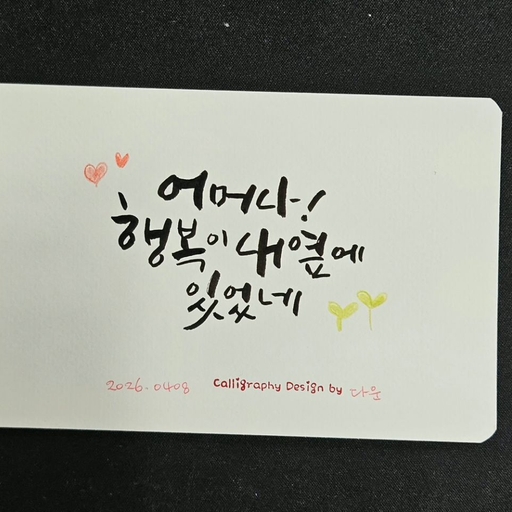 어머나!
행복이 내옆에
있었네
2026.0408 Calligraphy Design by 다운